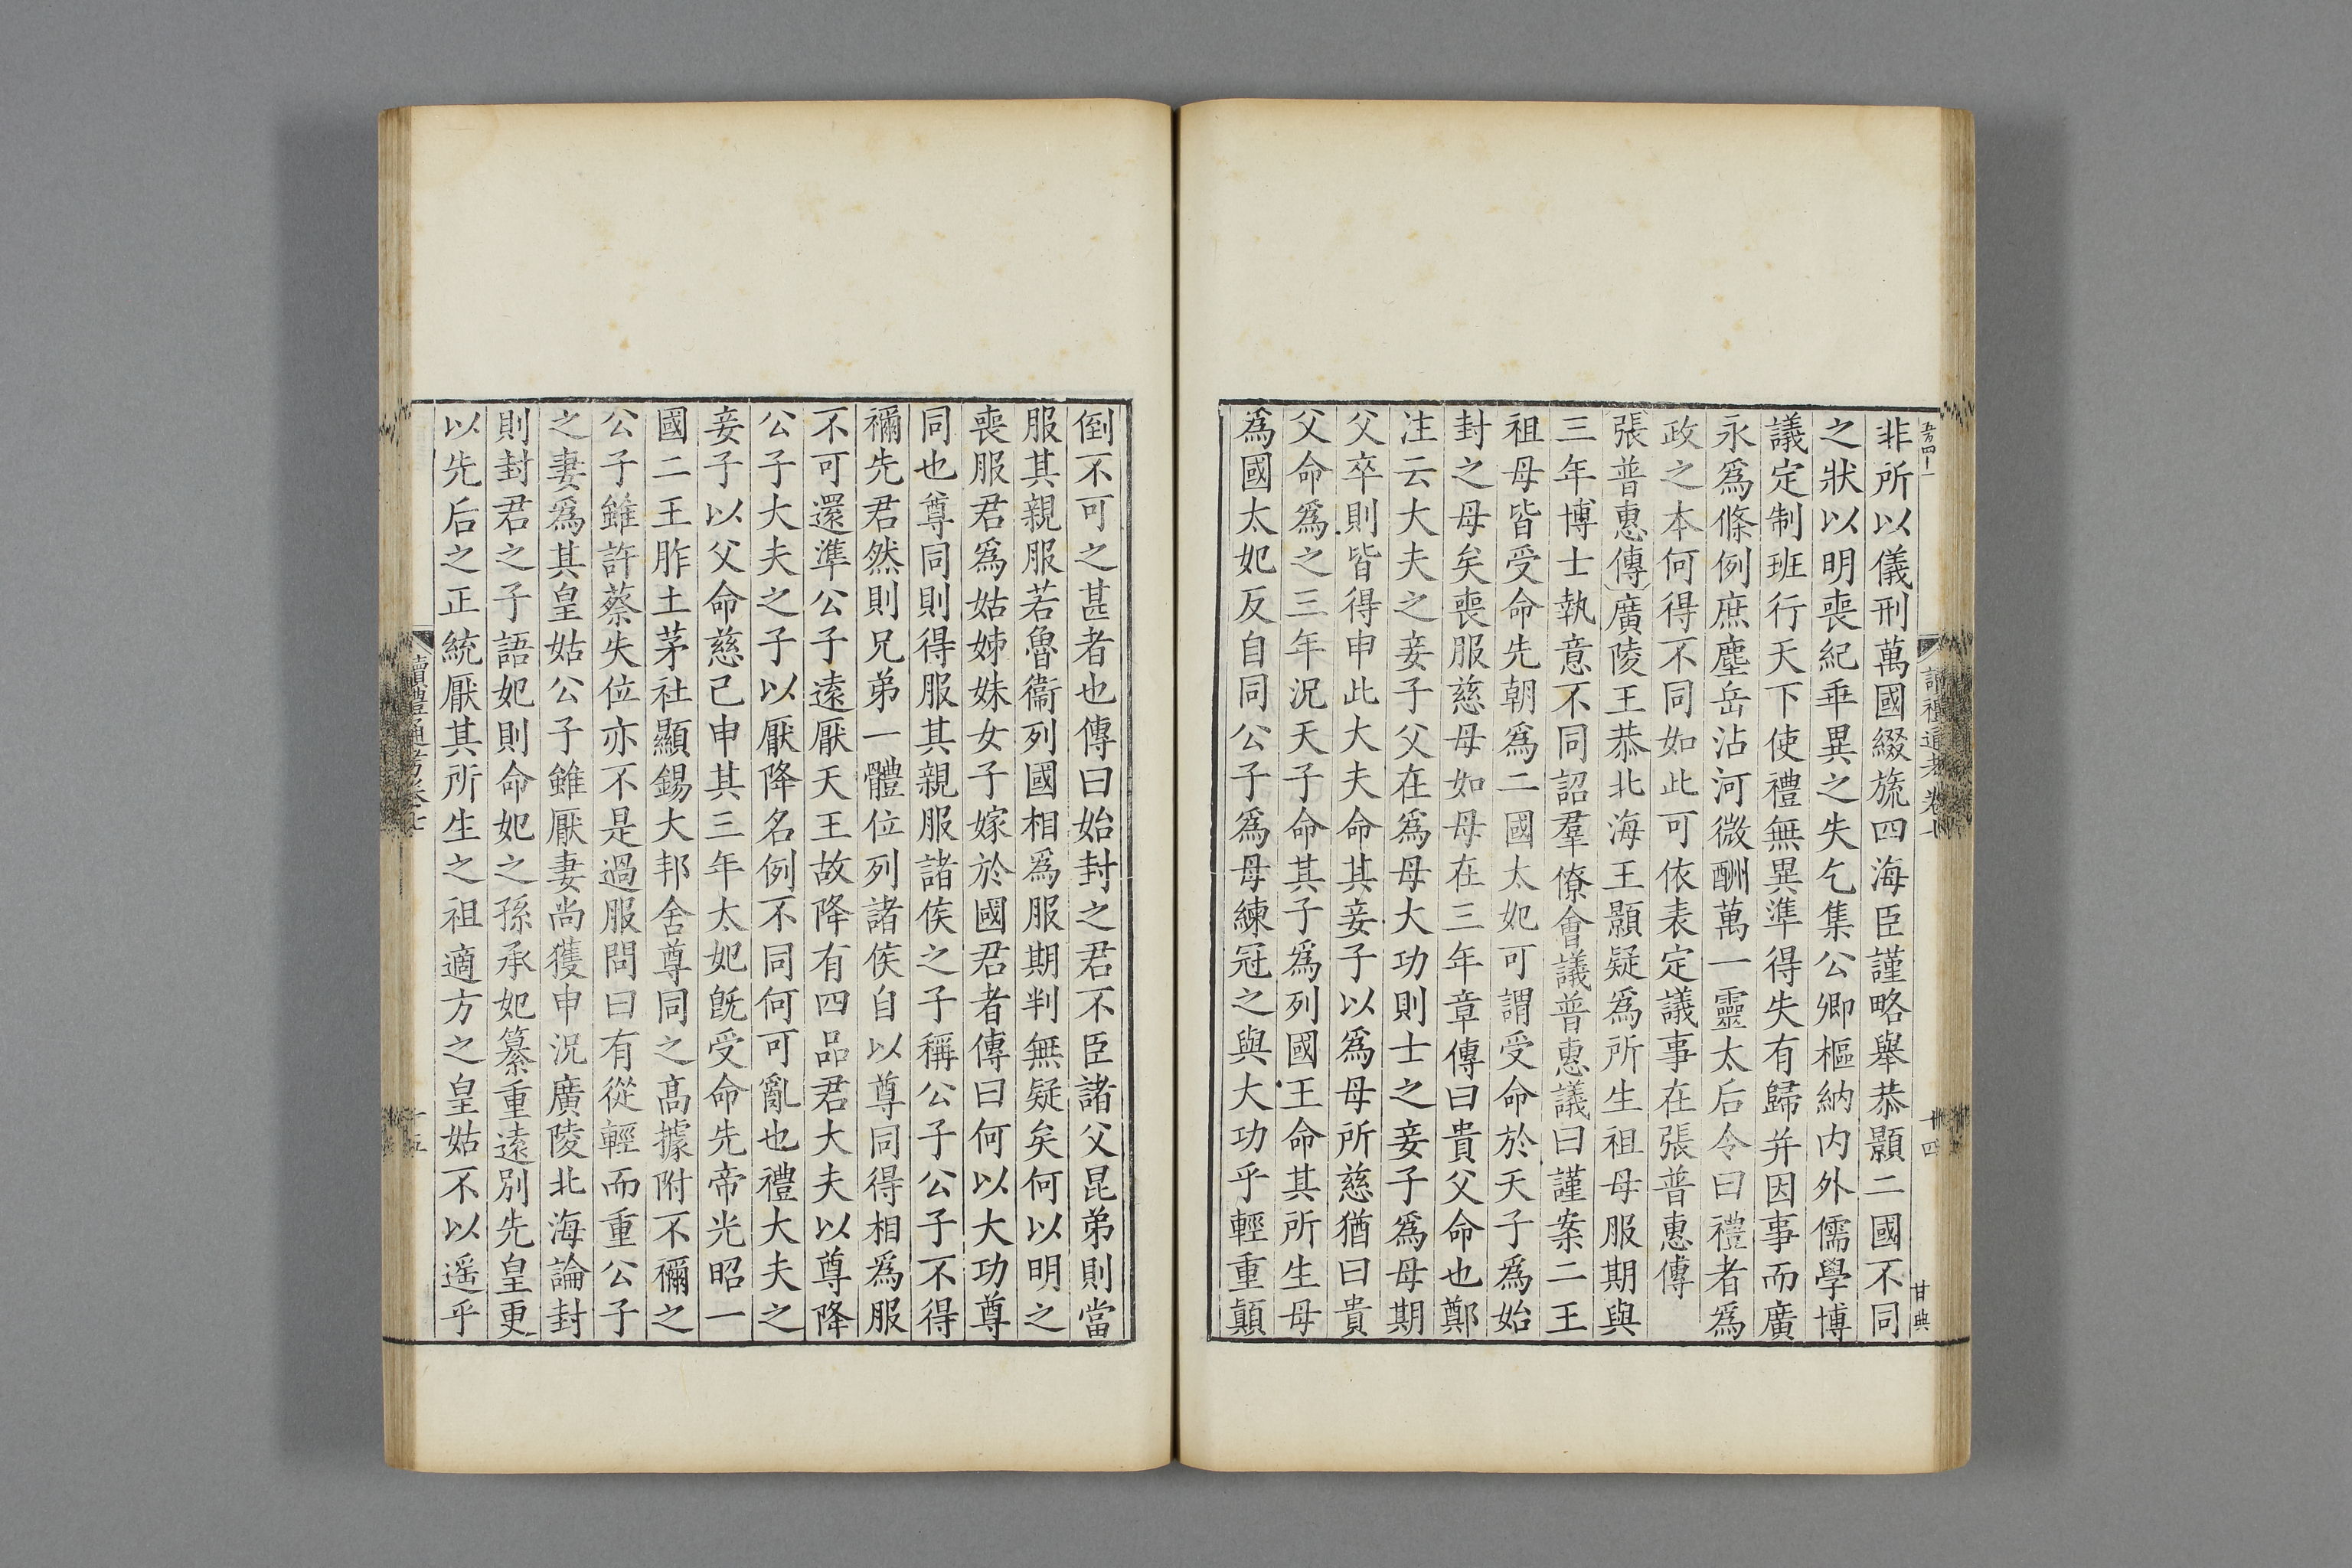 非所以儀刑萬國綴旒四海臣謹略舉恭顥二國不同
之狀以明喪紀乖異之失乞集公卿樞納内外儒學博
議定制班行天下使禮無異準得失有歸并因事而廣
永爲條例庶塵岳沾河微酬萬一靈太后令曰禮者爲
政之本何得不同如此可依表定議事在張普惠傳
張普惠傳廣陵王恭北海王顥疑爲所生祖母服期與
三年博士執意不同詔羣僚會議普惠議曰謹案二王
祖母皆受命先朝爲二國太妃可謂受命於天子爲始
封之母矣喪服慈母如母在三年章傳曰貴父命也鄭
注云大夫之妾子父在爲母大功則士之妾子爲母期
父卒則皆得申此大夫命其妾子以爲母所慈猶曰貴
父命爲之三年況天子命其子爲列國王命其所生母
爲國太妃反自同公子爲母練冠之與大功乎輕重顛
倒不可之甚者也傳曰始封之君不臣諸父昆弟則當
服其親服若魯衞列國相爲服期判無疑矣何以明之
喪服君爲姑姊妹女子嫁於國君者傳曰何以大功尊
同也尊同則得服其親服諸侯之子稱公子公子不得
禰先君然則兄弟一體位列諸侯自以尊同得相爲服
不可還準公子遠厭天王故降有四品君大夫以尊降
公子大夫之子以厭降名例不同何可亂也禮大夫之
妾子以父命慈己申其三年太妃旣受命先帝光昭一
國二王胙土茅社顯錫大邦舍尊同之高據附不禰之
公子雖許蔡失位亦不是過服問曰有從輕而重公子
之妻爲其皇姑公子雖厭妻尚獲申況廣陵北海論封
則封君之子語妃則命妃之孫承妃纂重遠別先皇更
以先后之正統厭其所生之祖適方之皇姑不以遥乎
讀禮通考卷七
十四
甘典
讀禮通考卷七
十五